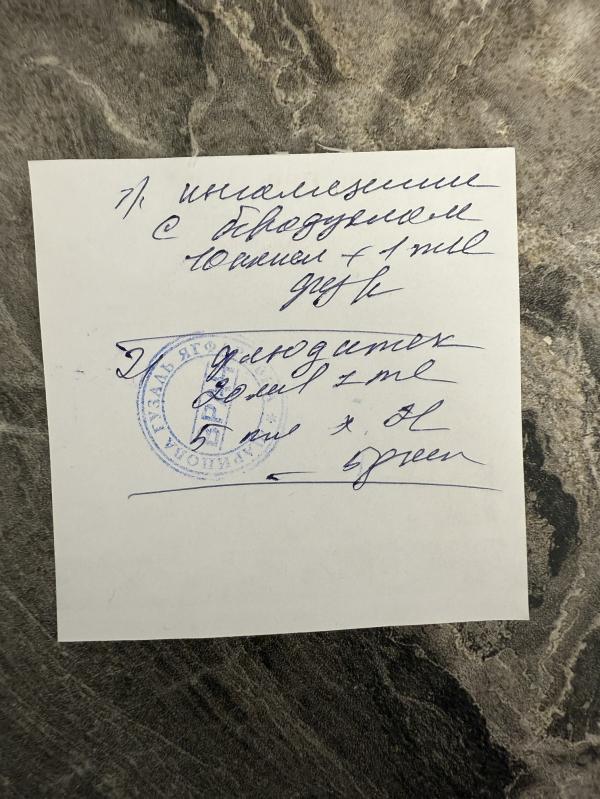 1) ингаляции
с беродуалом
10 капел + 1 мл
физ р
2) флюдитек
20 мг 1 мл
5 мл х 2
5 дней
ВРАЧ
ГУЗАЛЬ ЯГФ